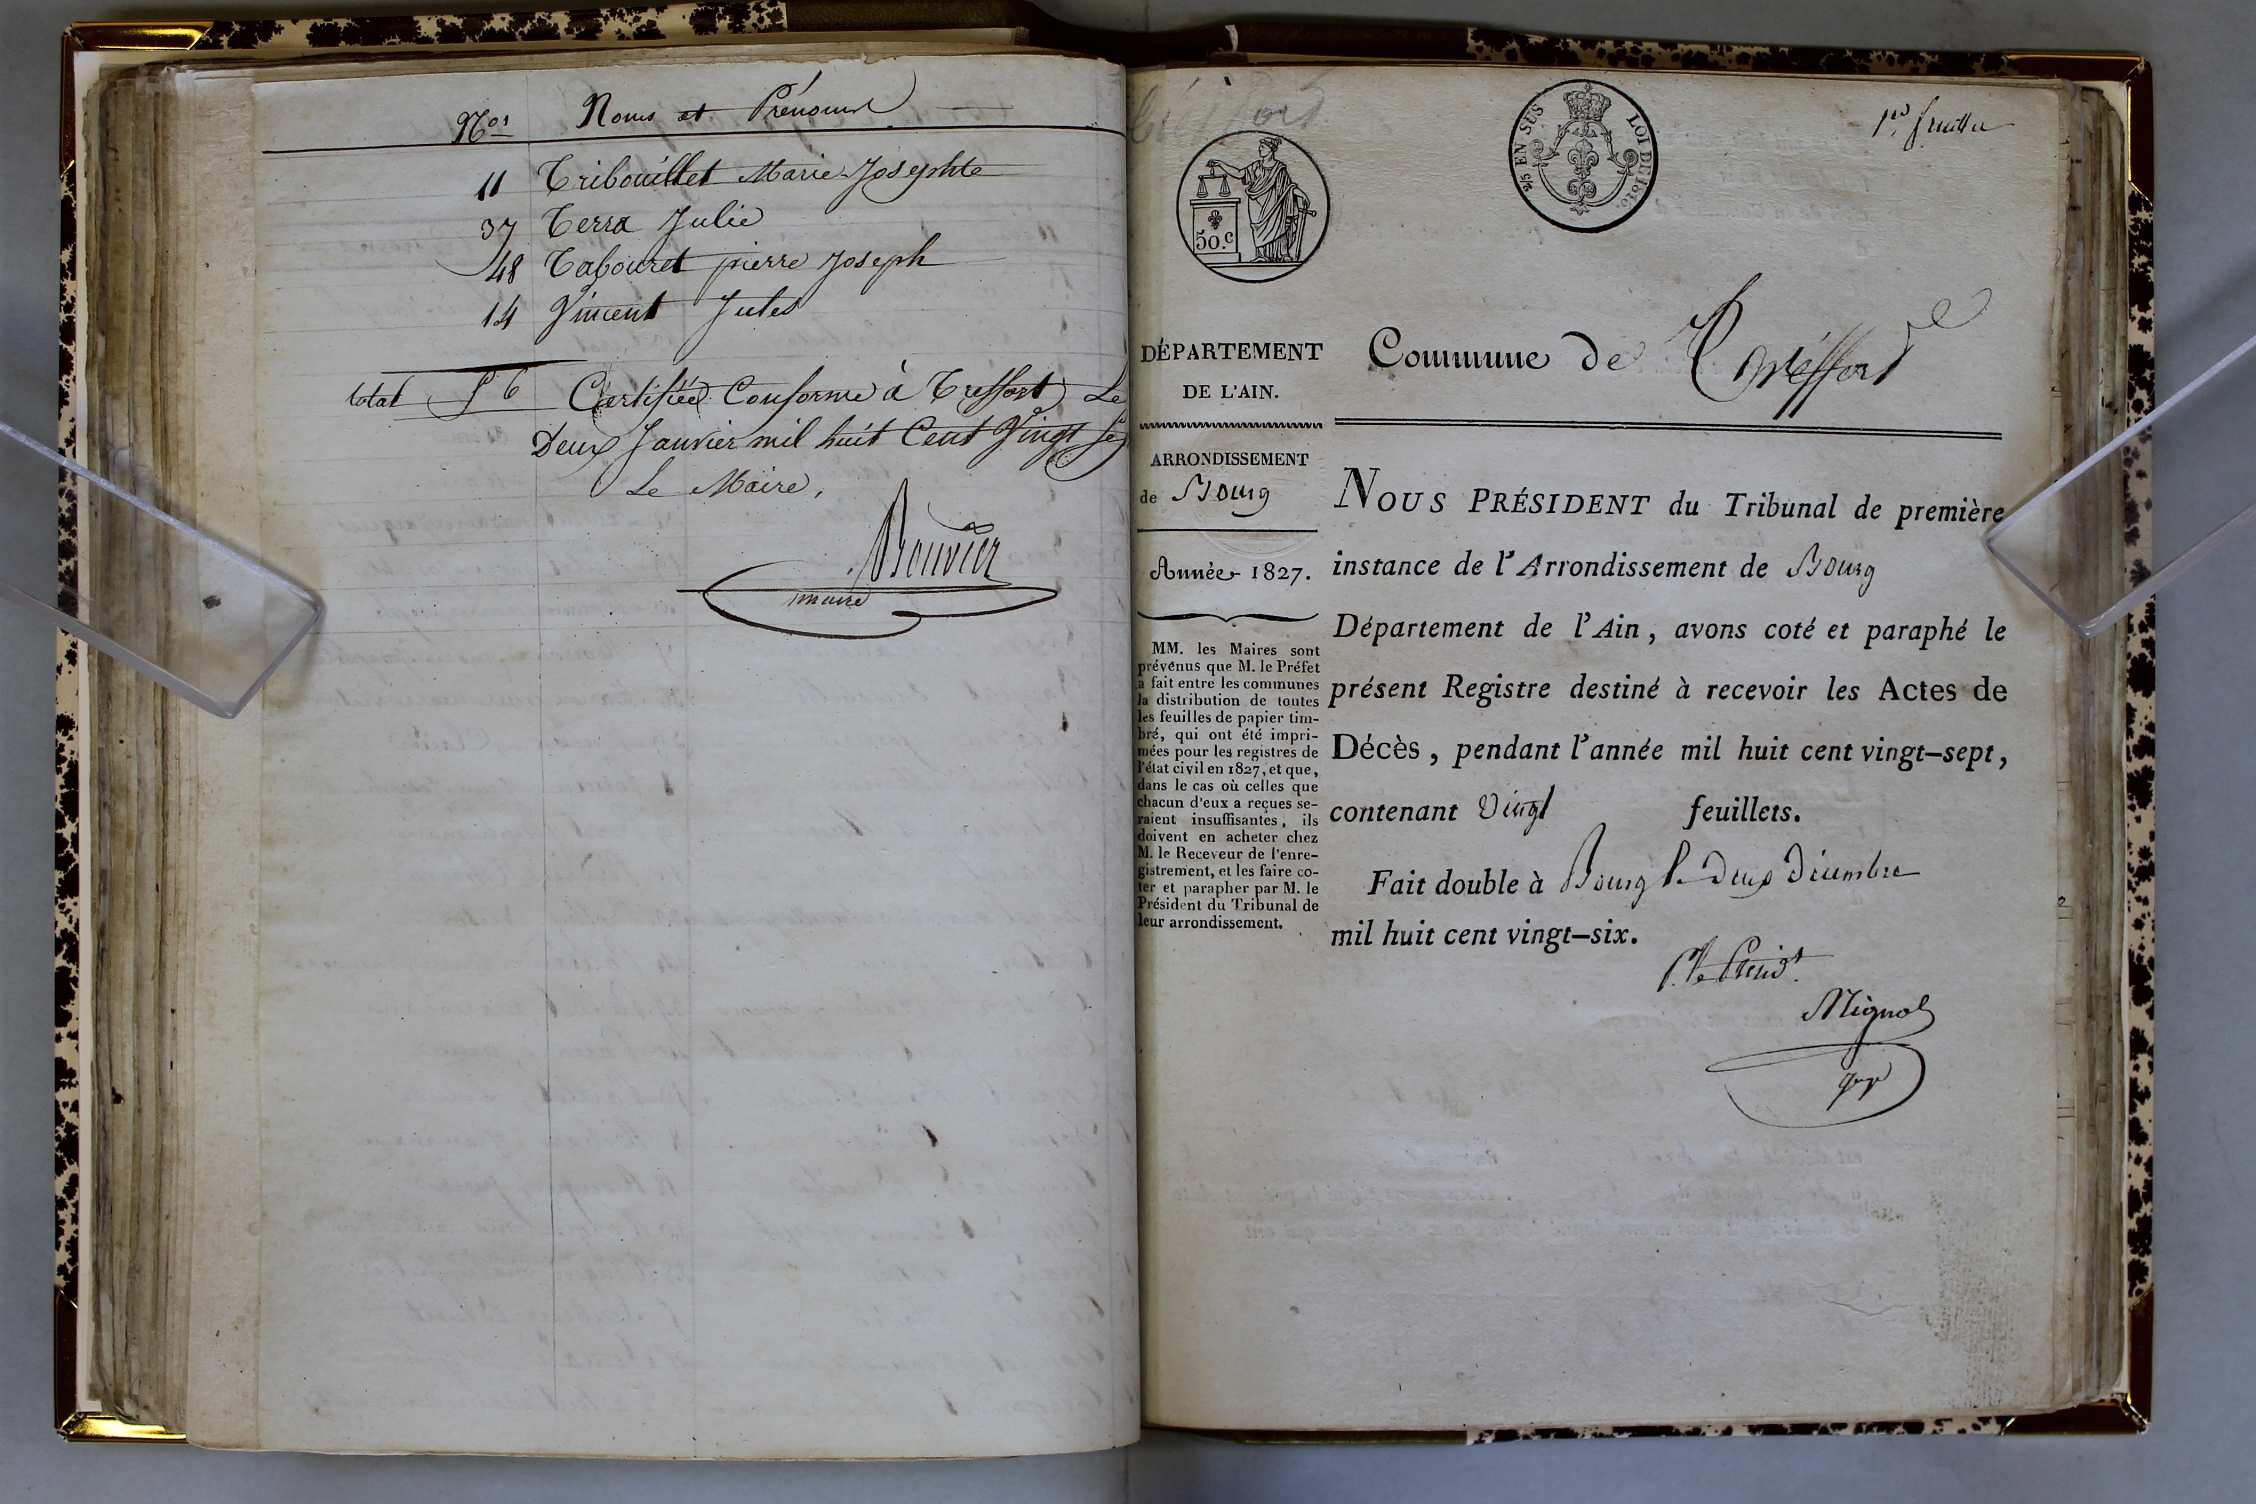 Nos Noms et Prénoms
11 Tribouillet Marie Josephte
37 Terra Julie
48 Tabouret pierre Joseph
14 Vincent Jules
total 56 Certifiée Conforme à Treffort Le
Deux Janvier mil huit Cent Vingt
Le Maire,
Bouvier
maire
50.c
2/5 EN SUS
LOI DE 1816
1er feuillet
DÉPARTEMENT
DE L'AIN.
ARRONDISSEMENT
de Bourg
Année 1827.
MM. les Maires sont
prévenus que M. le Préfet
a fait entre les communes
la distribution de toutes
les feuilles de papier tim-
bré, qui ont été impri-
mées pour les registres de
l'état civil en 1827, et que,
dans le cas où celles que
chacun d'eux a reçues se-
raient insuffisantes, ils
doivent en acheter chez
M. le Receveur de l'enre-
gistrement, et les faire co-
ter et parapher par M. le
Président du Tribunal de
leur arrondissement.
Commune de Tréffort
NOUS PRÉSIDENT du Tribunal de première
instance de l'Arrondissement de Bourg
Département de l'Ain, avons coté et paraphé le
présent Registre destiné à recevoir les Actes de
Décès, pendant l'année mil huit cent vingt-sept,
contenant Vingt feuillets.
Fait double à Bourg le Deux Décembre
mil huit cent vingt-six.
P. le Présidt.
Mignot
juge